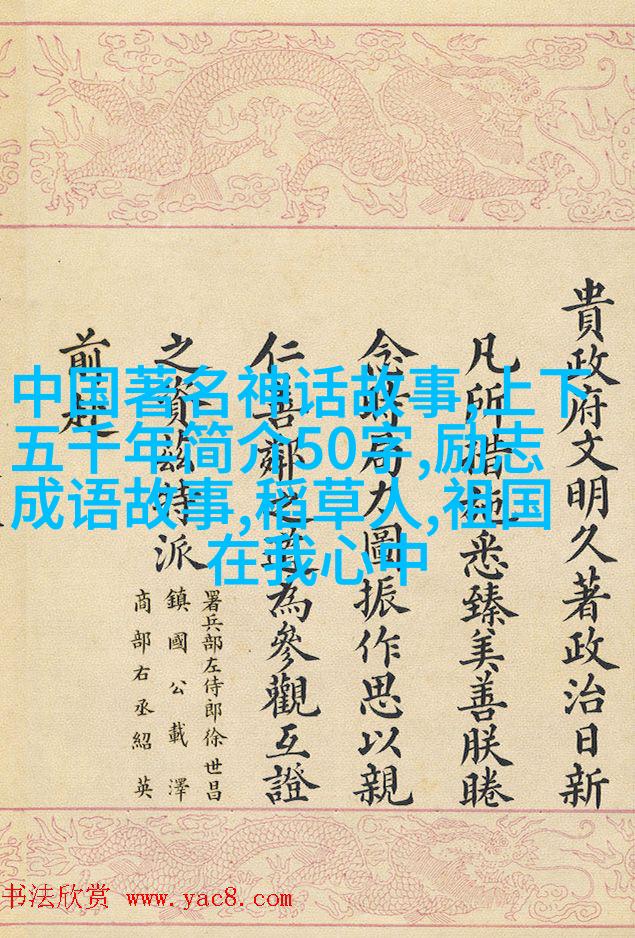 貴政府文明久著政治日新
凡所措施悉臻美善朕睠
念時局力圖振作思以親
仁善鄰之道為參觀互證
之資茲特派
署兵部左侍郎徐世昌
鎮國公載澤
商部右丞紹英
前赴
中国著名神话故事,上下
五千年简介50字,励志
成语故事,稻草人,祖国
在我心中
书法欣赏 www.yac8.com